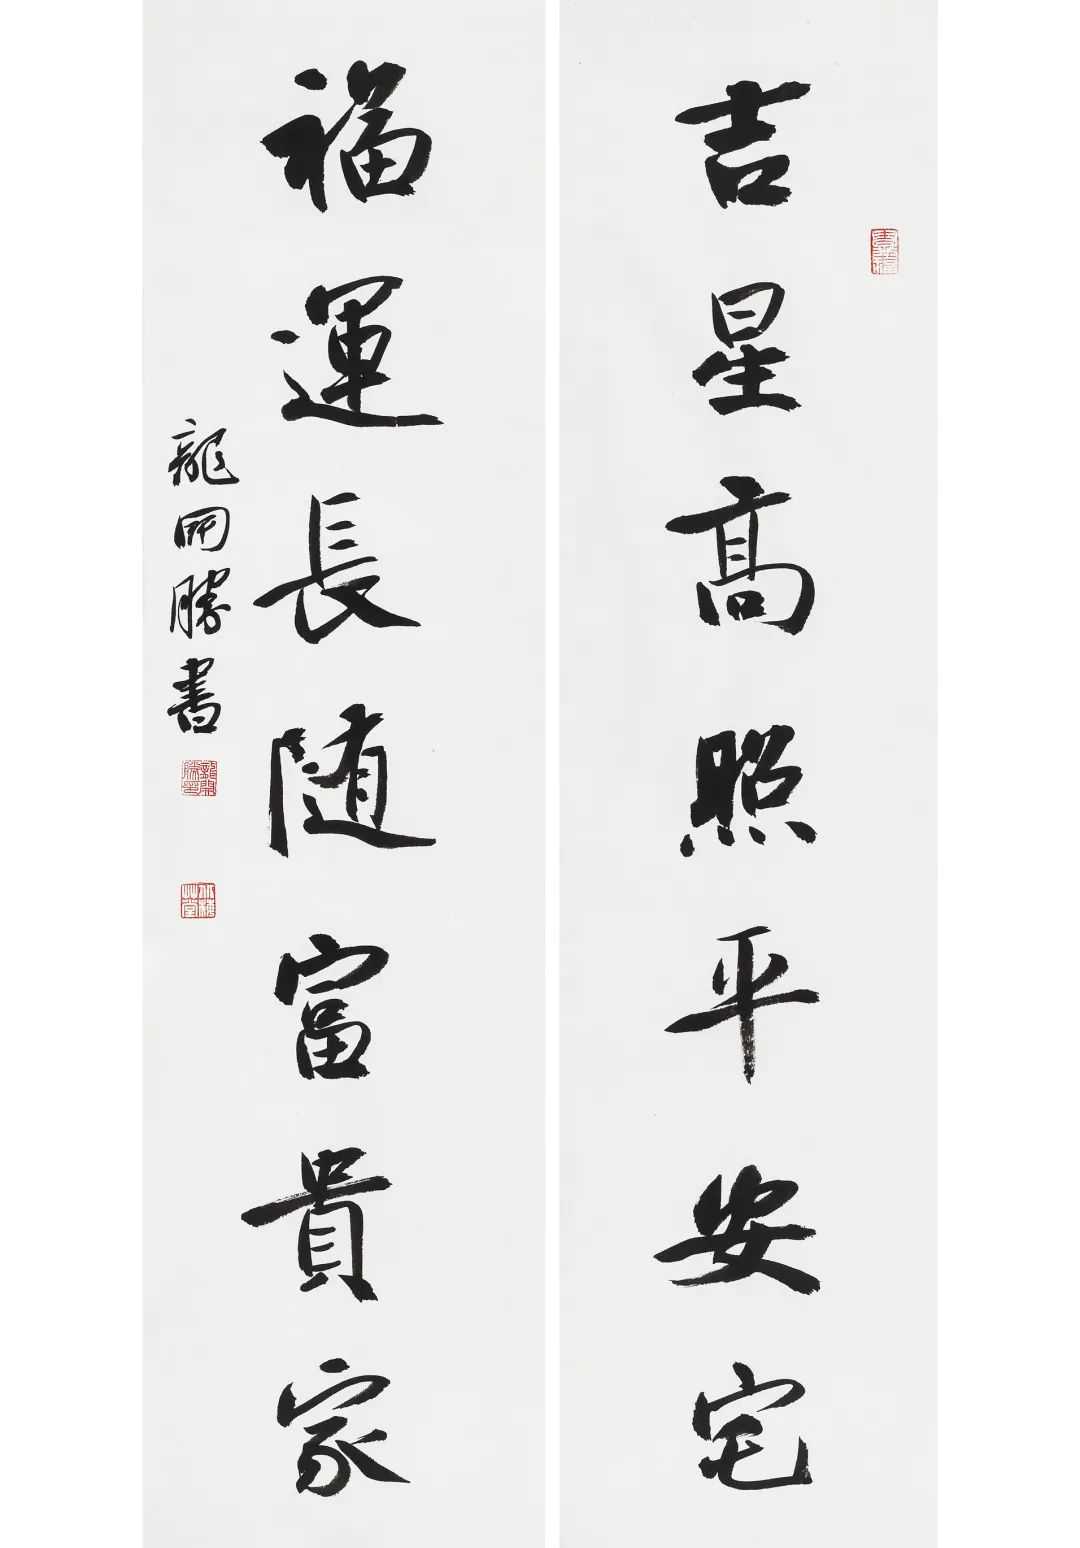 吉星高照平安宅
福運長随富貴家
龍開勝書